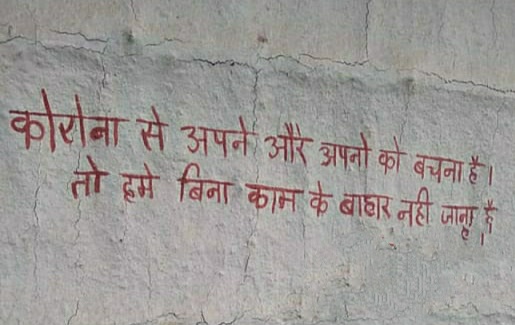 कोरोना से अपने और अपनो को बचना है।
तो हमे बिना काम के बाहार नही जाना है।